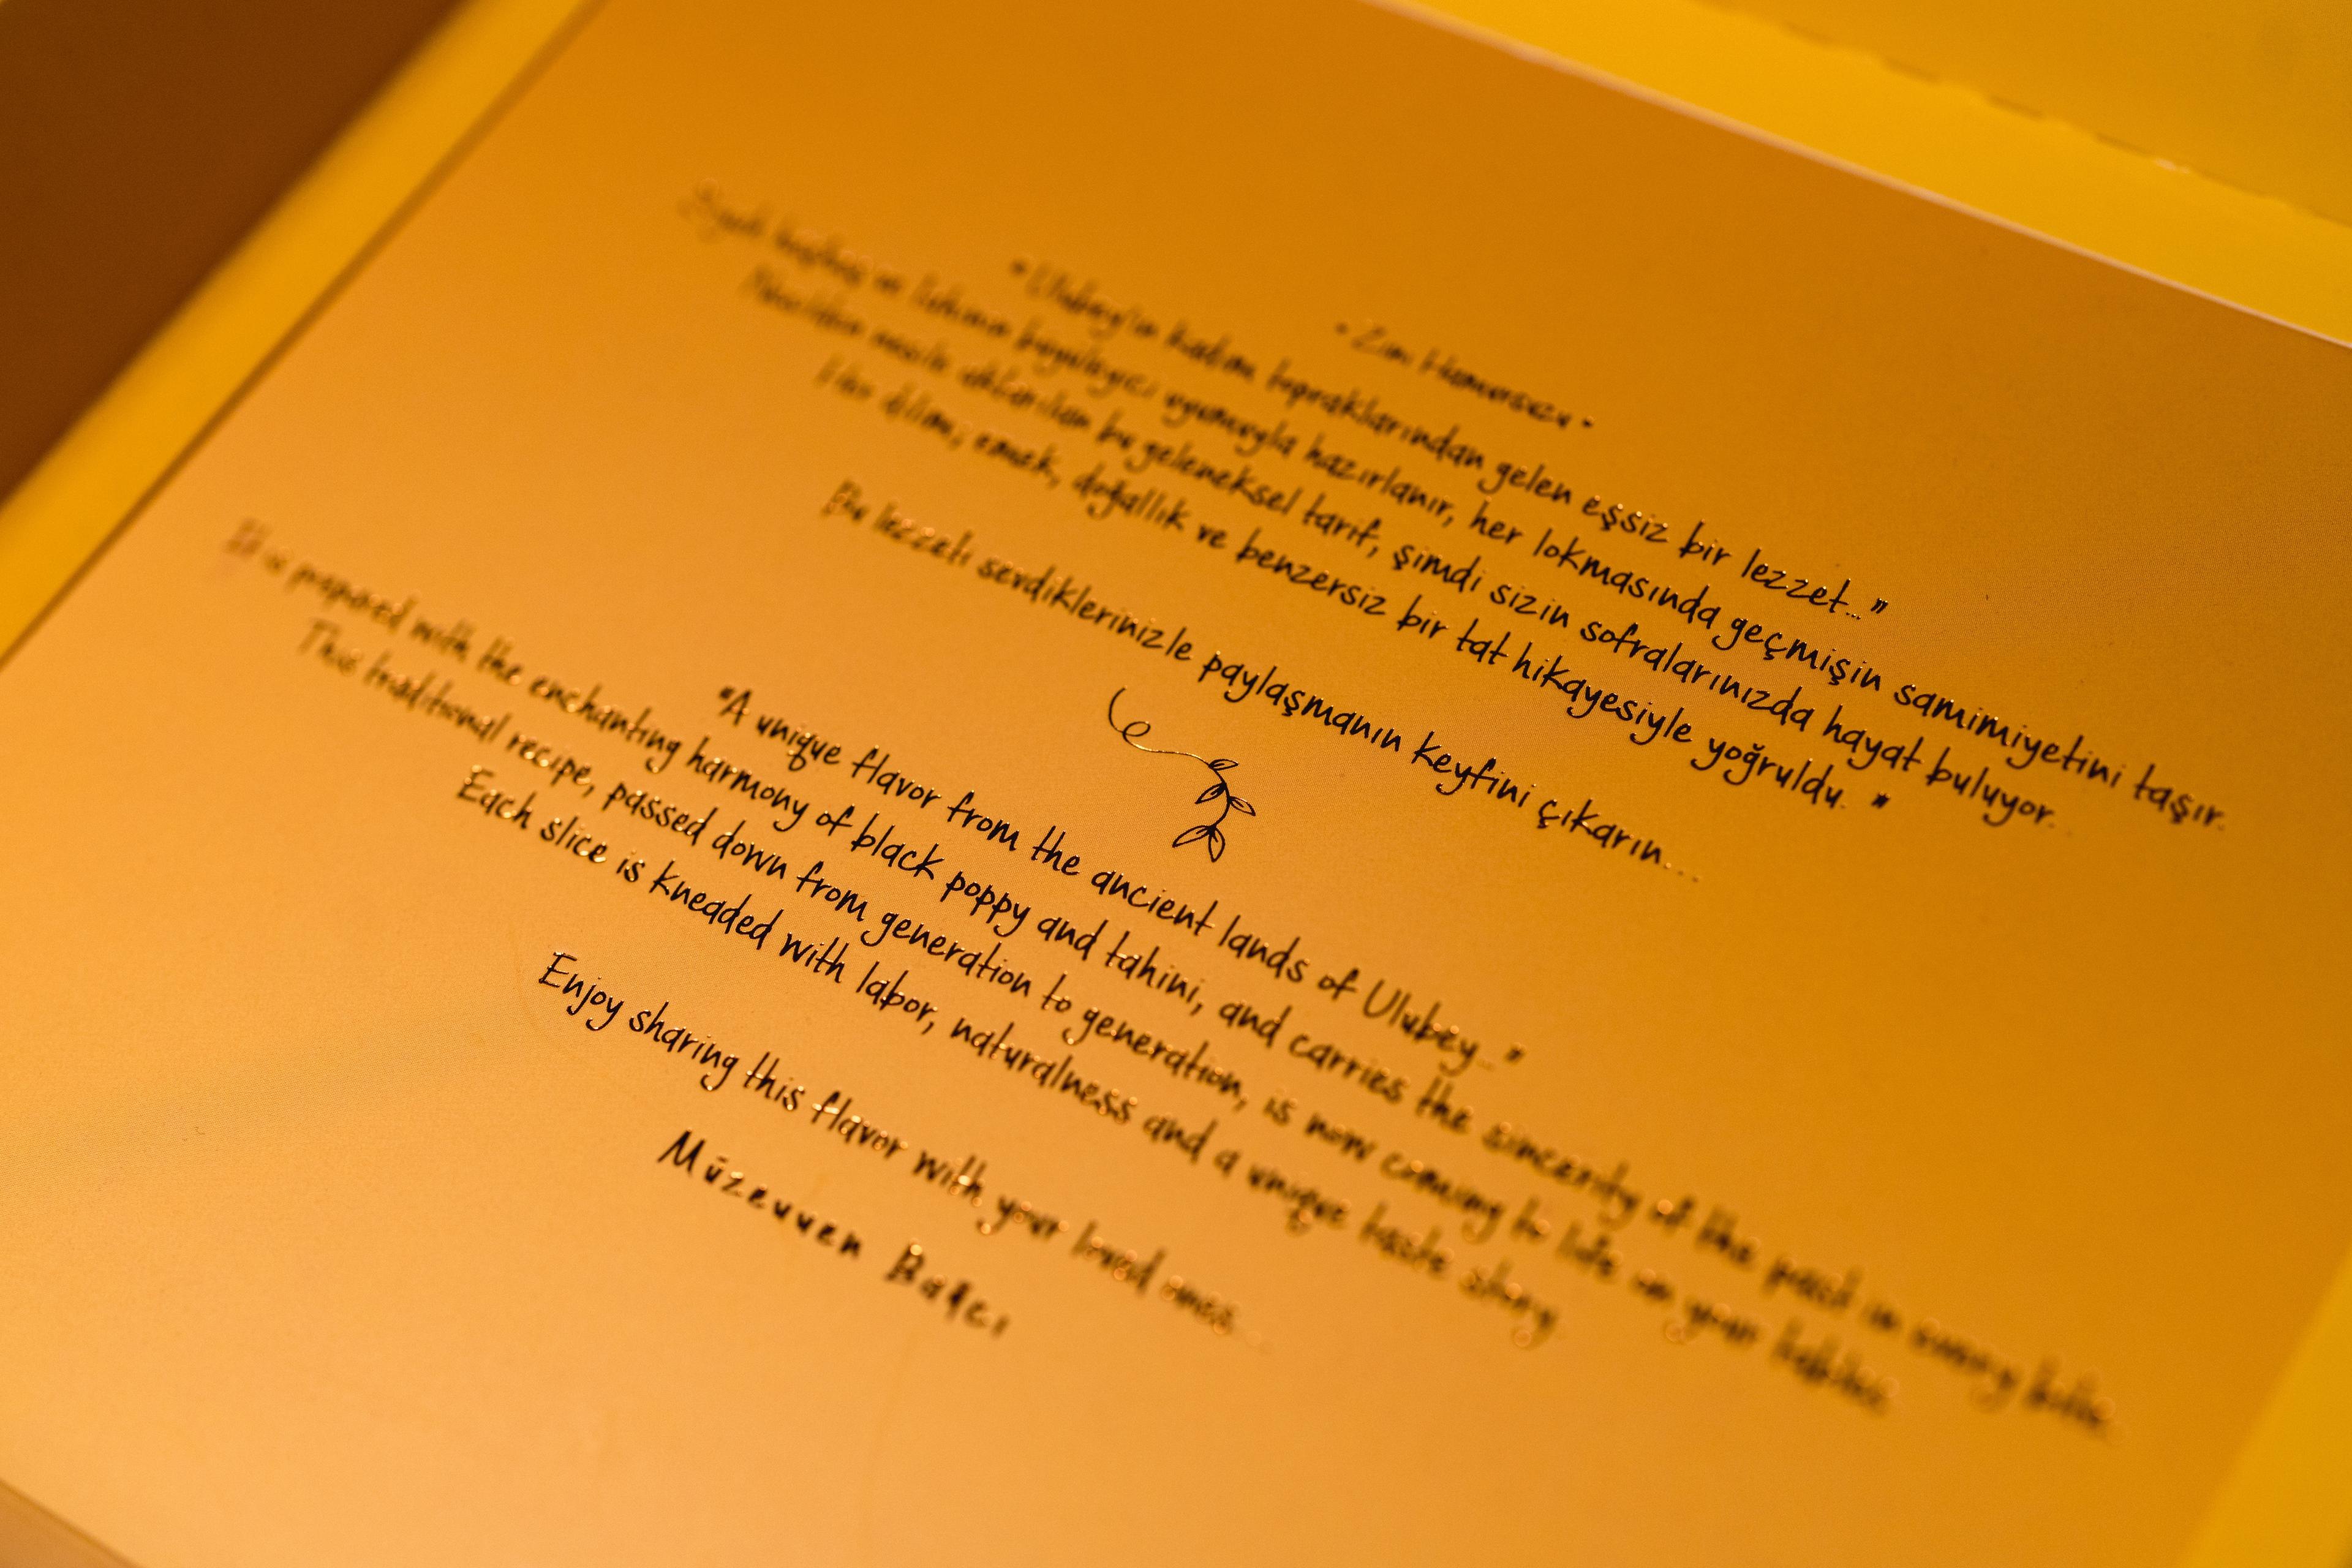 "Ulubey'in kadim topraklarından gelen eşsiz bir lezzet..."
Siyah haşhaş ve tahinin büyüleyici uyumuyla hazırlanır, her lokmasında geçmişin samimiyetini taşır.
Nesilden nesile aktarılan bu geleneksel tarif, şimdi sizin sofralarınızda hayat buluyor.
Her dilimi, emek, doğallık ve benzersiz bir tat hikayesiyle yoğruldu. "
Bu lezzeti sevdiklerinizle paylaşmanın keyfini çıkarın...
"A unique flavor from the ancient lands of Ulubey..."
It is prepared with the enchanting harmony of black poppy and tahini, and carries the sincerity of the past in every bite.
This traditional recipe, passed down from generation to generation, is now coming to life on your tables.
Each slice is kneaded with labor, naturalness and a unique taste story
Enjoy sharing this flavor with your loved ones...
Müzeyyen Bağcı